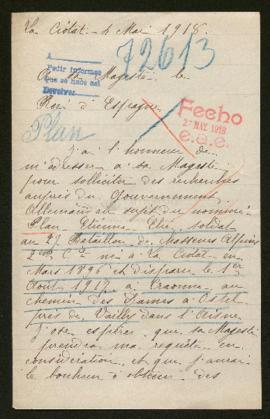 La Ciotat - 4 Mai 1918
72613
A
Pedir informes
Que se hable así
Devolver
A Sa Majesté le
Roi d'Espagne
Fecho
27 MAY. 1918
e.a.e.
Plan
J'ai l'honneur de
m'adresser à sa Majesté
pour solliciter des recherches
auprès du Gouvernement
Allemand au sujet du nommé
Plan Etienne Elie soldat
au 27 Bataillon de Chasseurs Alpins
2me Cie né à La Ciotat en
Mars 1896 et disparu le 1er
Août 1917 à Craonne au
chemin des Dames à Ostel
près de Vailly dans l'Aisne
j'ose espérer que sa Majesté
prendra ma requête en
considération et que j'aurai
le bonheur d'obtenir des